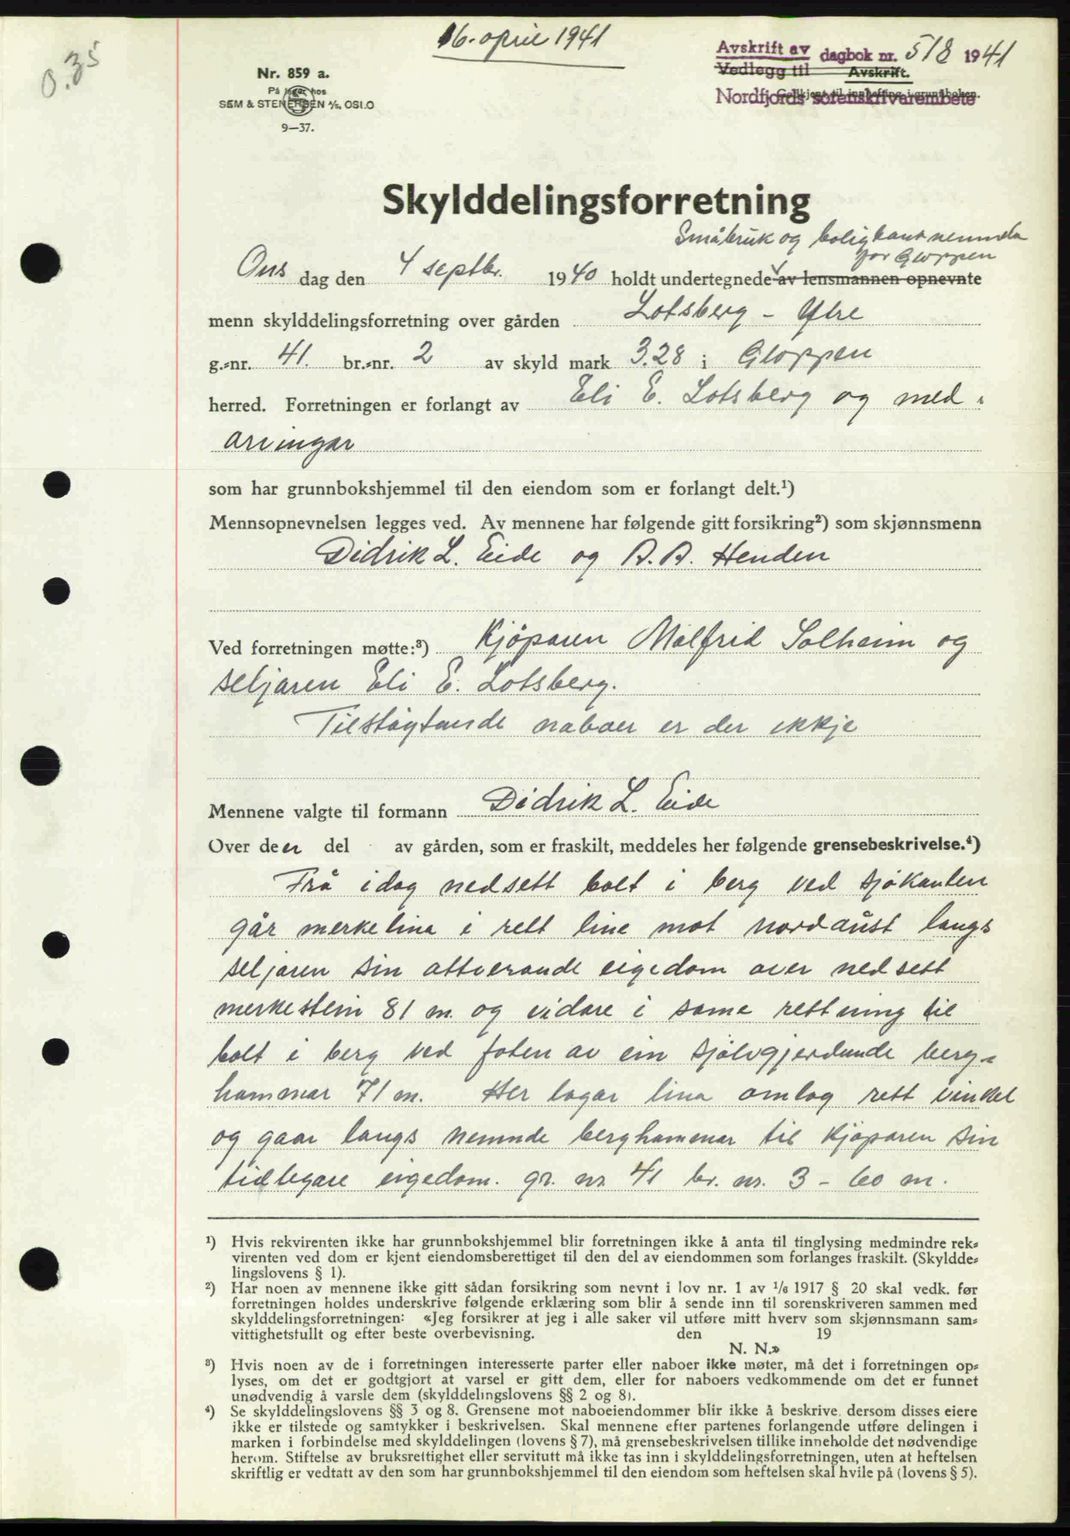 0.35
16. april 1941
Avskrift av dagbok nr. 518 1941
Vedlegg til Avskrift.
Nordfjords sorenskrivarembete
Nr. 859 a.
På lager hos
SEM & STENERSEN A/S, OSLO
9—37.
Skylddelingsforretning
Småbruk og bolig
for Gloppen
Ons dag den 4 septbr. 1940 holdt undertegnede av lensmannen opnevnte
menn skylddelingsforretning over gården Lotsberg - Ytre
g.-nr. 41. br.-nr. 2 av skyld mark 3.28 i Gloppen
herred. Forretningen er forlangt av Eli E. Lotsberg og med-
arvingar
som har grunnbokshjemmel til den eiendom som er forlangt delt.¹)
Mennsopnevnelsen legges ved. Av mennene har følgende gitt forsikring²) som skjønnsmenn
Didrik L. Eide og A. A. Henden
Ved forretningen møtte:³) Kjøparen Målfrid Solheim og
seljaren Eli E. Lotsberg.
Tilstøytande naboer er der ikkje
Mennene valgte til formann Didrik L. Eide
Over den del av gården, som er fraskilt, meddeles her følgende grensebeskrivelse.⁴)
Frå idag nedsett bolt i berg ved sjøkanten
går merkelina i rett line mot nordaust langs
seljaren sin attverande eigedom over nedsett
merkestein 81 m. og vidare i same rettning til
bolt i berg ved foten av ein sjølvgjerdande berg-
hammar 71 m. Her lagar lina omlag rett vinkel
og gaar langs nemnde berghammar til kjøparen sin
tidlegare eigedom. gr. nr. 41 br. nr. 3 - 60 m.
¹) Hvis rekvirenten ikke har grunnbokshjemmel blir forretningen ikke å anta til tinglysing medmindre rek-
virenten ved dom er kjent eiendomsberettiget til den del av eiendommen som forlanges fraskilt. (Skyldde-
lingslovens § 1).
²) Har noen av mennene ikke gitt sådan forsikring som nevnt i lov nr. 1 av ¹/₆ 1917 § 20 skal vedk. før
forretningen holdes underskrive følgende erklæring som blir å sende inn til sorenskriveren sammen med
skylddelingsforretningen: «Jeg forsikrer at jeg i alle saker vil utføre mitt hverv som skjønnsmann sam-
vittighetsfullt og efter beste overbevisning. den 19
N. N.»
³) Hvis noen av de i forretningen interesserte parter eller naboer ikke møter, må det i forretningen op-
lyses, om det er godtgjort at varsel er gitt dem, eller for naboers vedkommende om det er funnet
unødvendig å varsle dem (skylddelingslovens §§ 2 og 8).
⁴) Se skylddelingslovens §§ 3 og 8. Grensene mot naboeiendommer blir ikke å beskrive, dersom disses eiere
ikke er tilstede og samtykker i beskrivelsen. Skal mennene efter partenes forlangende utføre delingen i
marken i forbindelse med skylddelingen (lovens § 7), må grensebeskrivelsen tillike inneholde det nødvendige
herom. Stiftelse av bruksrettighet eller servitutt må ikke tas inn i skylddelingsforretningen, uten at heftelsen
skriftlig er vedtatt av den som har grunnbokshjemmel til den eiendom som heftelsen skal hvile på (lovens § 5).